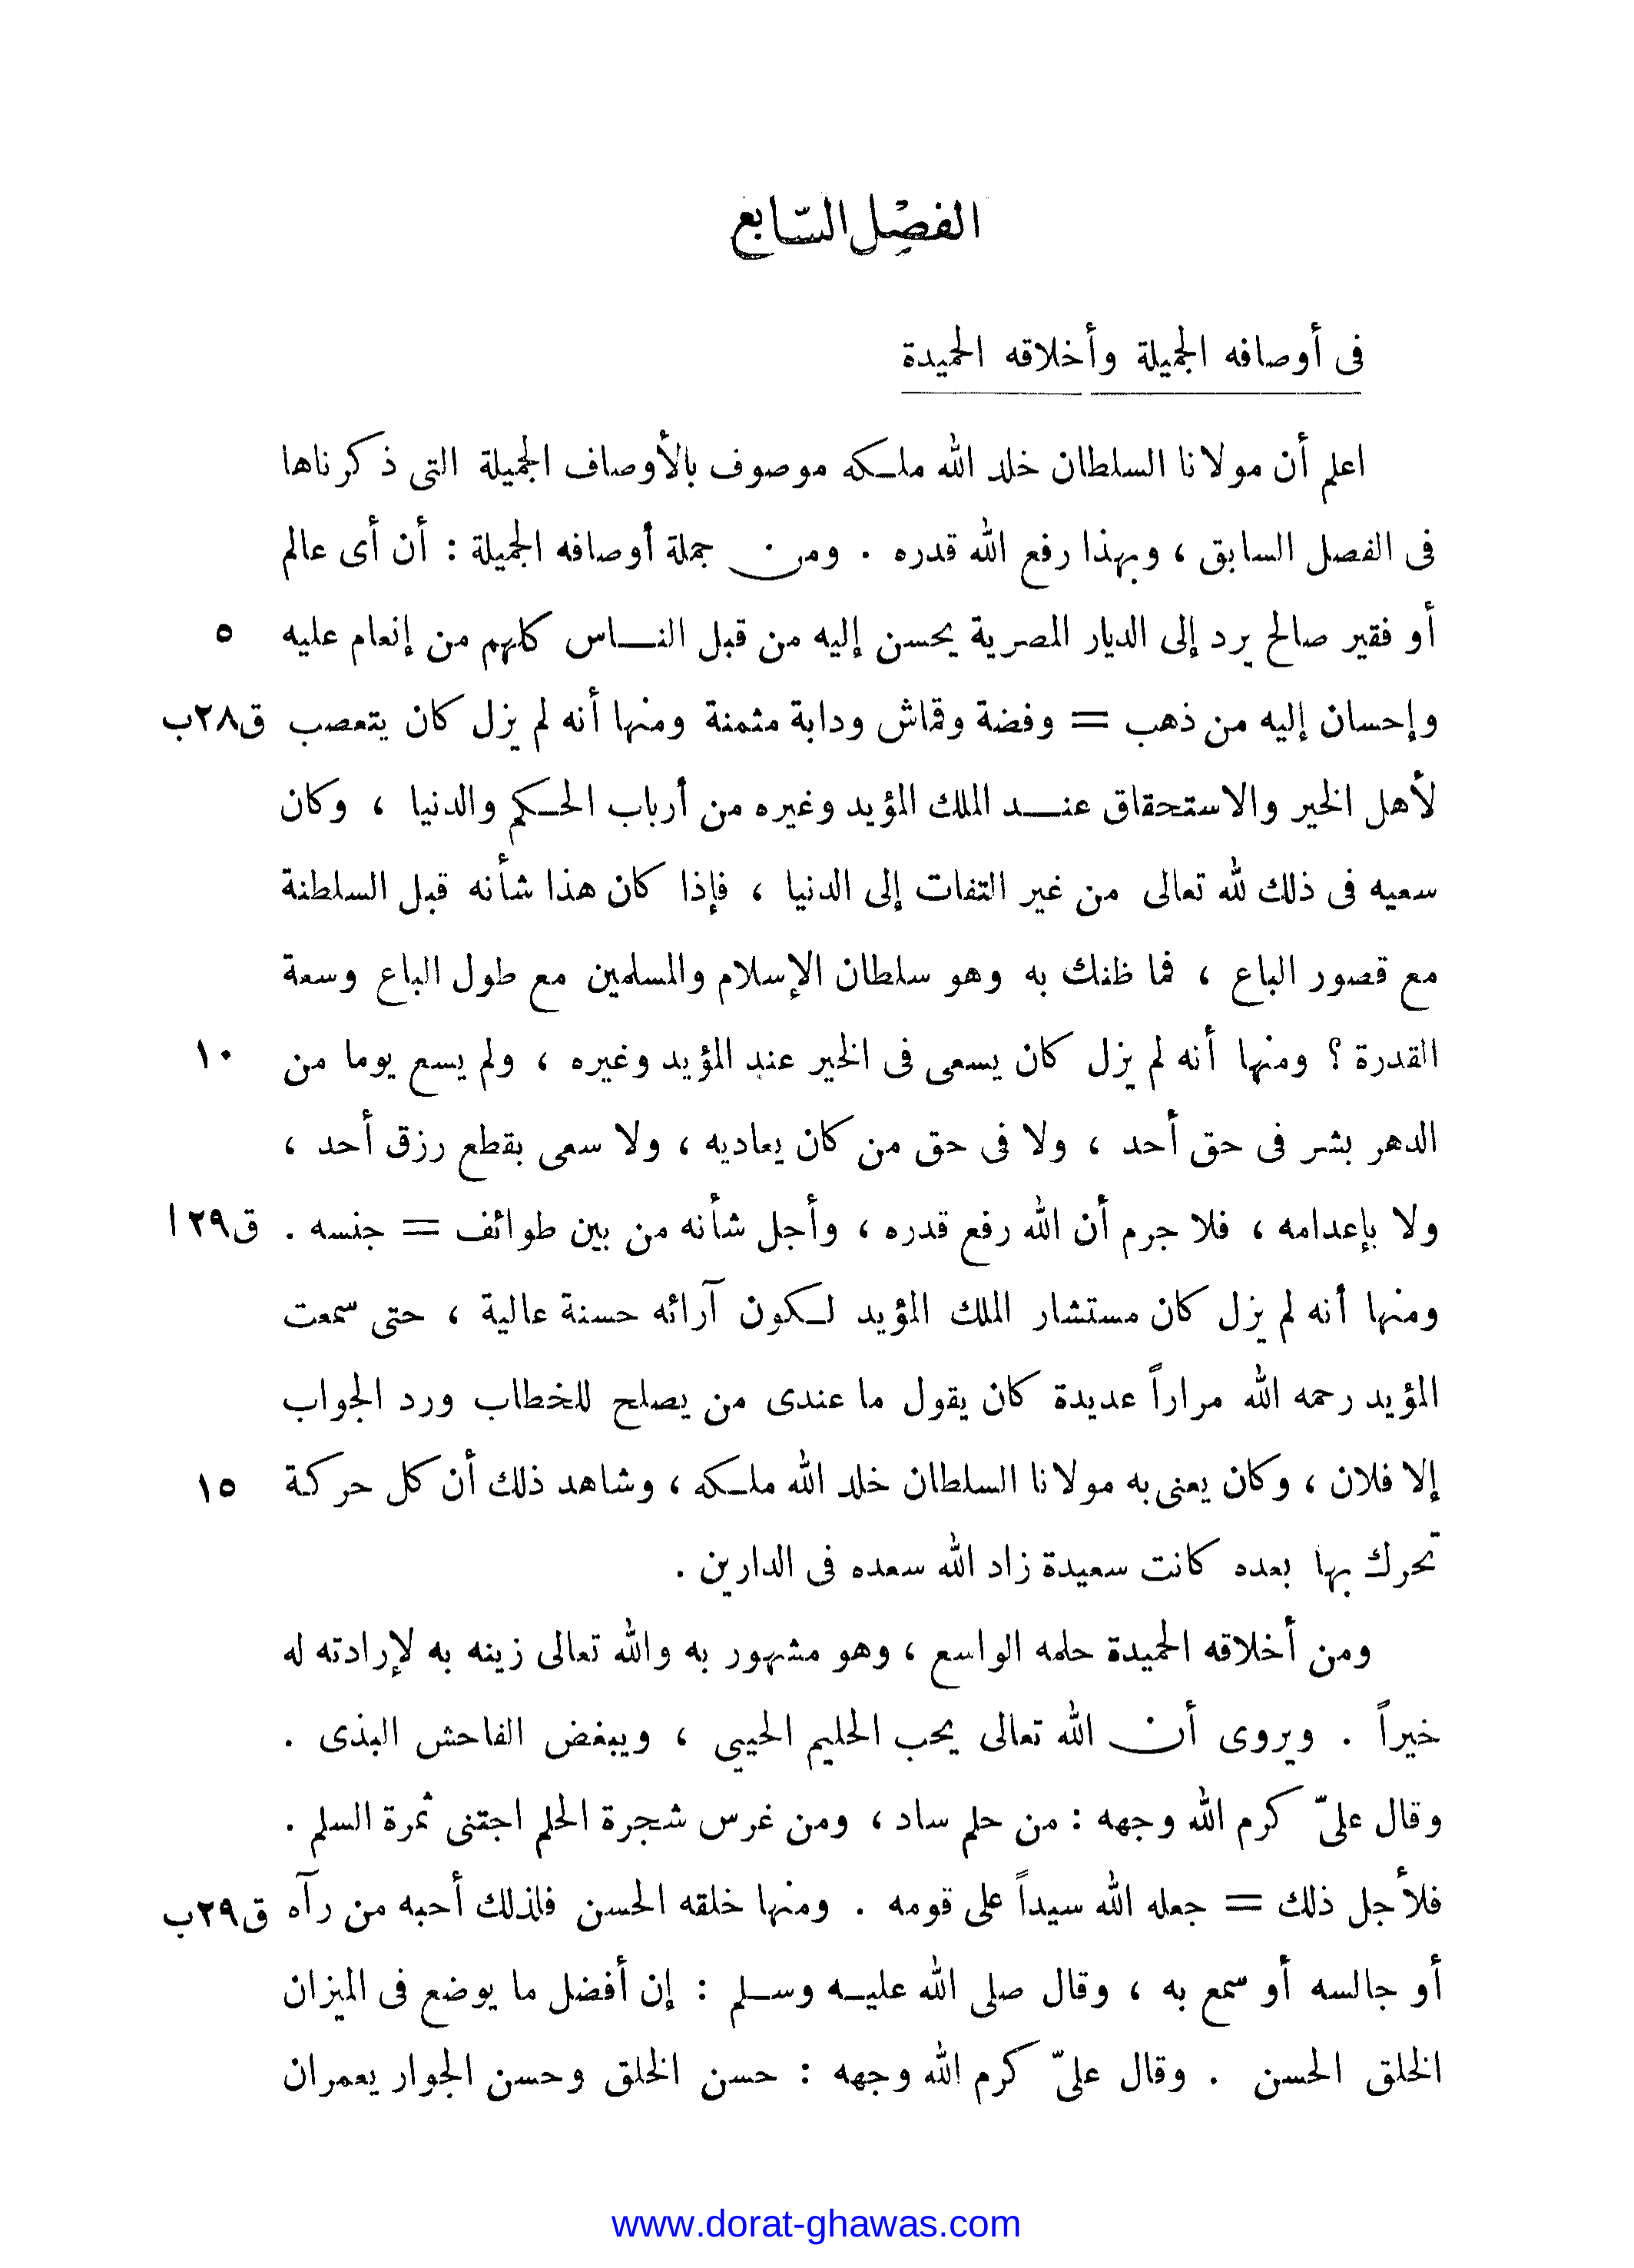 الفصل السابع
فى أوصافه الجميلة وأخلاقه الحميدة
اعلم أن مولانا السلطان خلد الله ملكه موصوف بالأوصاف الجميلة التى ذكرناها
فى الفصل السابق ، وبهذا رفع الله قدره . ومن جملة أوصافه الجميلة : أن أى عالم
أو فقير صالح يرد إلى الديار المصرية يحسن إليه من قبل الناس كلهم من إنعام عليه ٥
وإحسان إليه من ذهب = وفضة وقماش ودابة مثمنة ومنها أنه لم يزل كان يتعصب ق٢٨ب
لأهل الخير والاستحقاق عند الملك المؤيد وغيره من أرباب الحكم والدنيا ، وكان
سعيه فى ذلك لله تعالى من غير التفات إلى الدنيا ، فإذا كان هذا شأنه قبل السلطنة
مع قصور الباع ، فما ظنك به وهو سلطان الإسلام والمسلمين مع طول الباع وسعة
القدرة ؟ ومنها أنه لم يزل كان يسعى فى الخير عند المؤيد وغيره ، ولم يسع يوما من ١٠
الدهر بشر فى حق أحد ، ولا فى حق من كان يعاديه ، ولا سعى بقطع رزق أحد ،
ولا بإعدامه ، فلا جرم أن الله رفع قدره ، وأجل شأنه من بين طوائف = جنسه . ق٢٩ا
ومنها أنه لم يزل كان مستشار الملك المؤيد لكون آرائه حسنة عالية ، حتى سمعت
المؤيد رحمه الله مراراً عديدة كان يقول ما عندى من يصلح للخطاب ورد الجواب
إلا فلان ، وكان يعنى به مولانا السلطان خلد الله ملكه ، وشاهد ذلك أن كل حركة ١٥
تحرك بها بعده كانت سعيدة زاد الله سعده فى الدارين .
ومن أخلاقه الحميدة حلمه الواسع ، وهو مشهور به والله تعالى زينه به لإرادته له
خيراً . ويروى أن الله تعالى يحب الحليم الحيى ، ويبغض الفاحش البذى .
وقال علىّ كرم الله وجهه : من حلم ساد ، ومن غرس شجرة الحلم اجتنى ثمرة السلم .
فلأجل ذلك = جعله الله سيداً على قومه . ومنها خلقه الحسن فلذلك أحبه من رآه ق٢٩ب
أو جالسه أو سمع به ، وقال صلى الله عليه وسلم : إن أفضل ما يوضع فى الميزان
الخلق الحسن . وقال علىّ كرم الله وجهه : حسن الخلق وحسن الجوار يعمران
www.dorat-ghawas.com